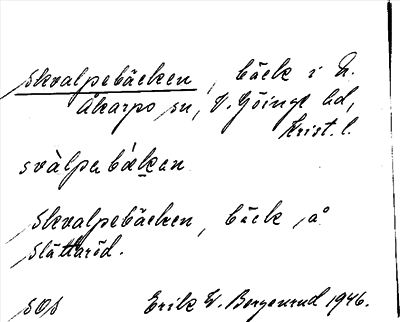 Skvalpebäcken, bäck i N.
Åkarps sn, V. Göinge hd,
Krist. l.
svàlpabækan
Skvalpebäcken, bäck, å
Slättaröd.
SOS Erik W. Bergenrud 1946.